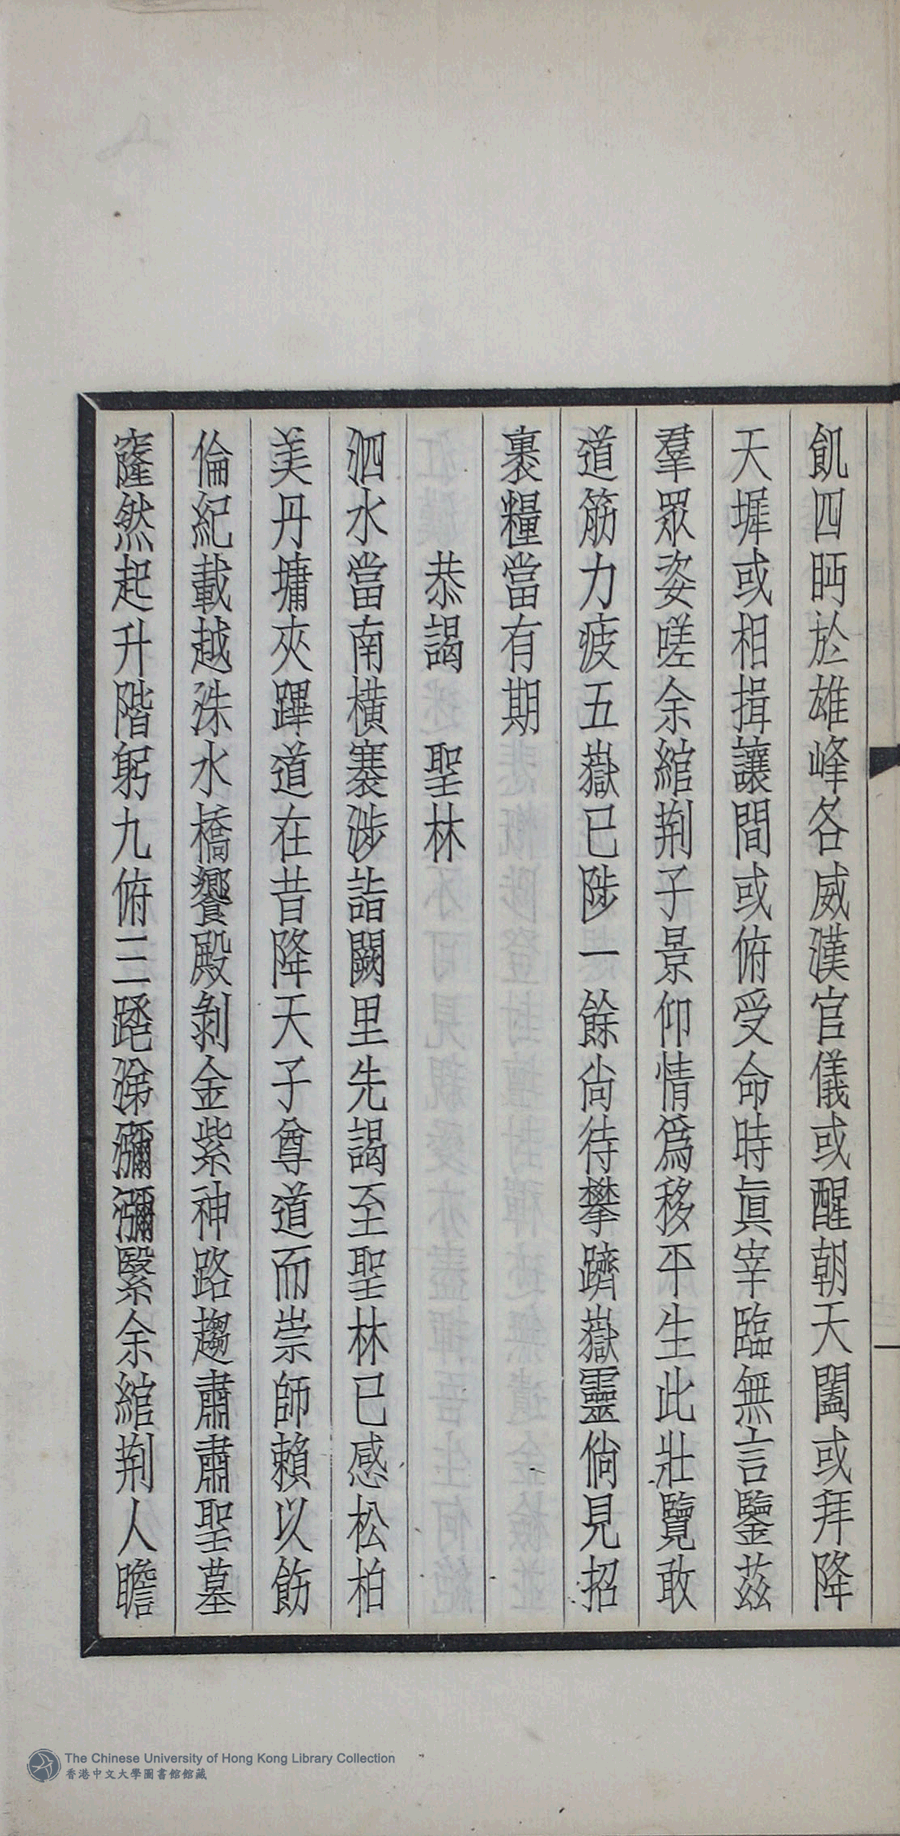 飢四眄於雄峰各威漢官儀或醒朝天闔或拜降
天墀或相揖讓間或俯受命時眞宰臨無言鑒茲
羣眾姿嗟余綰荆子景仰情爲移平生此壯覽敢
道筋力疲五嶽已陟一餘尙待攀躋嶽靈倘見招
裹糧當有期
恭謁　聖林
泗水當南橫褰涉詣闕里先謁至聖林已感松柏
美丹墉夾蹕道在昔降天子尊道而崇師賴以飭
倫紀載越洙水橋饗殿剝金紫神路趨肅肅聖墓
窿然起升階躬九俯三蹯涕瀰瀰繄余綰荆人瞻
The Chinese University of Hong Kong Library Collection
香港中文大學圖書館館藏